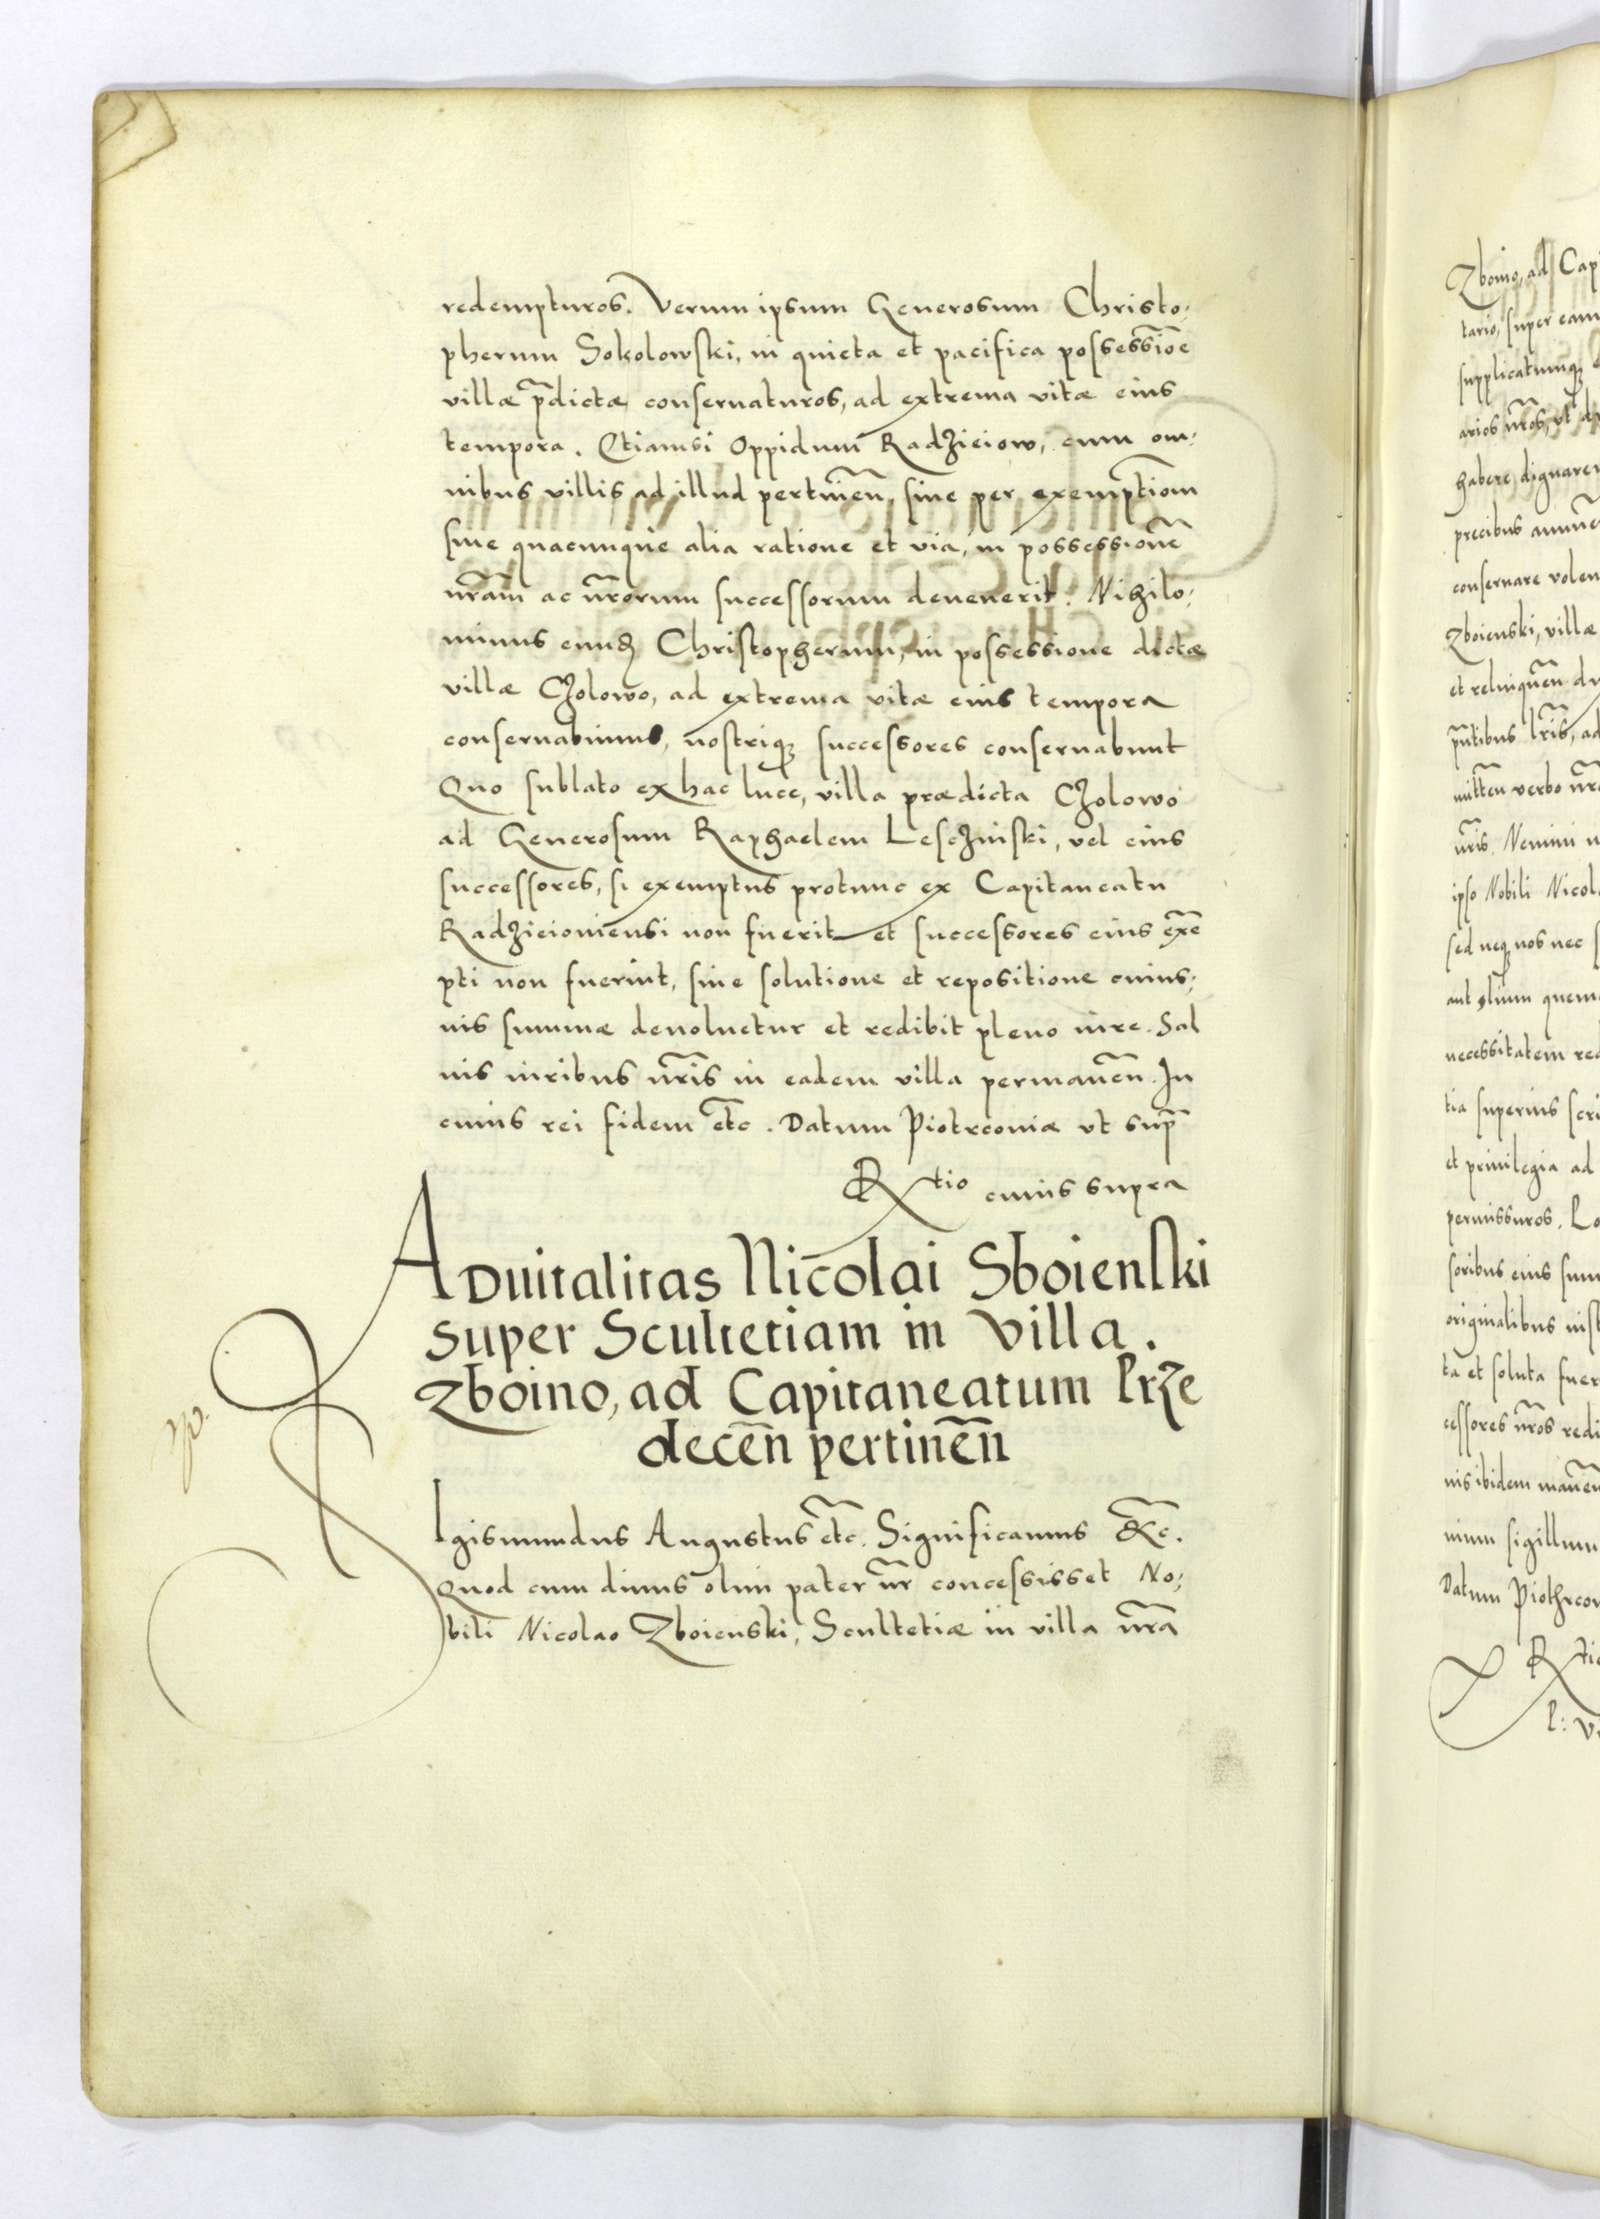 redempturos. Verum ipsum Generosum Christo:
pherum Sokolowski, in quieta et pacifica possessiōe
villæ p̄dictæ conseruaturos, ad extrema vitæ eius
tempora. Etiamsi Oppidum Radzieiow, cum om:
nibus villis ad illud pertineñ, siue per exemptiom
siue quacunque alia ratione et via, in possessionē
nr̄am ac nr̄orum successorum deuenerit. Nihilo:
minus eund Christopherum, in possessione dictæ
villæ Czolowo, ad extrema vitæ eius tempora
conseruabimus, nostriq successores conseruabunt
Quo sublato ex hac luce, villa prædicta Czolowo
ad Generosum Raphaelem Lesczinski, vel eius
successores, si exemptus protunc ex Capitaneatu
Radzieiouiensi non fuerit et successores eius exē
pti non fuerint, sine solutione et repositione cuius:
uis summæ deuoluetur et redibit pleno iure. Sal
uis iuribus nr̄is in eadem villa permaneñ. In
cuius rei fidem etc. Datum Piotrcouiæ vt sup̄
Rtio cuius supra
ADuitalitas Nicolai Sboienski
super Scultetiam in villa.
Zboino, ad Capitaneatum Prze
deceñ pertineñ
Igismundus Augustus etc. Significamus &c.
Quod cum diuus olim pater nr̄ concessisset No:
bili Nicolao Zboienski, Scultetiæ in villa nr̄a
Zboino, ad Cap
tario, super eam
supplicatumq
arios nr̄os, vt
habere dignare
precibus
conseruare volen
Zboienski, villæ
et relinqueñ du
pn̄tibus lr̄is, ad
mitteñ verbo nr̄
nr̄is. Nemini
ipso Nobili Nicol
sed neq nos nec
aut alium quem
necessitatem re
tia superius scri
et priuilegia ad
permissuros. Po
soribus eius sum
originalibus inst
ta et soluta fuer
cessores nr̄os redi
uis ibidem maneñ
sigillum
Datum Piothrcou
Rtio
P: V